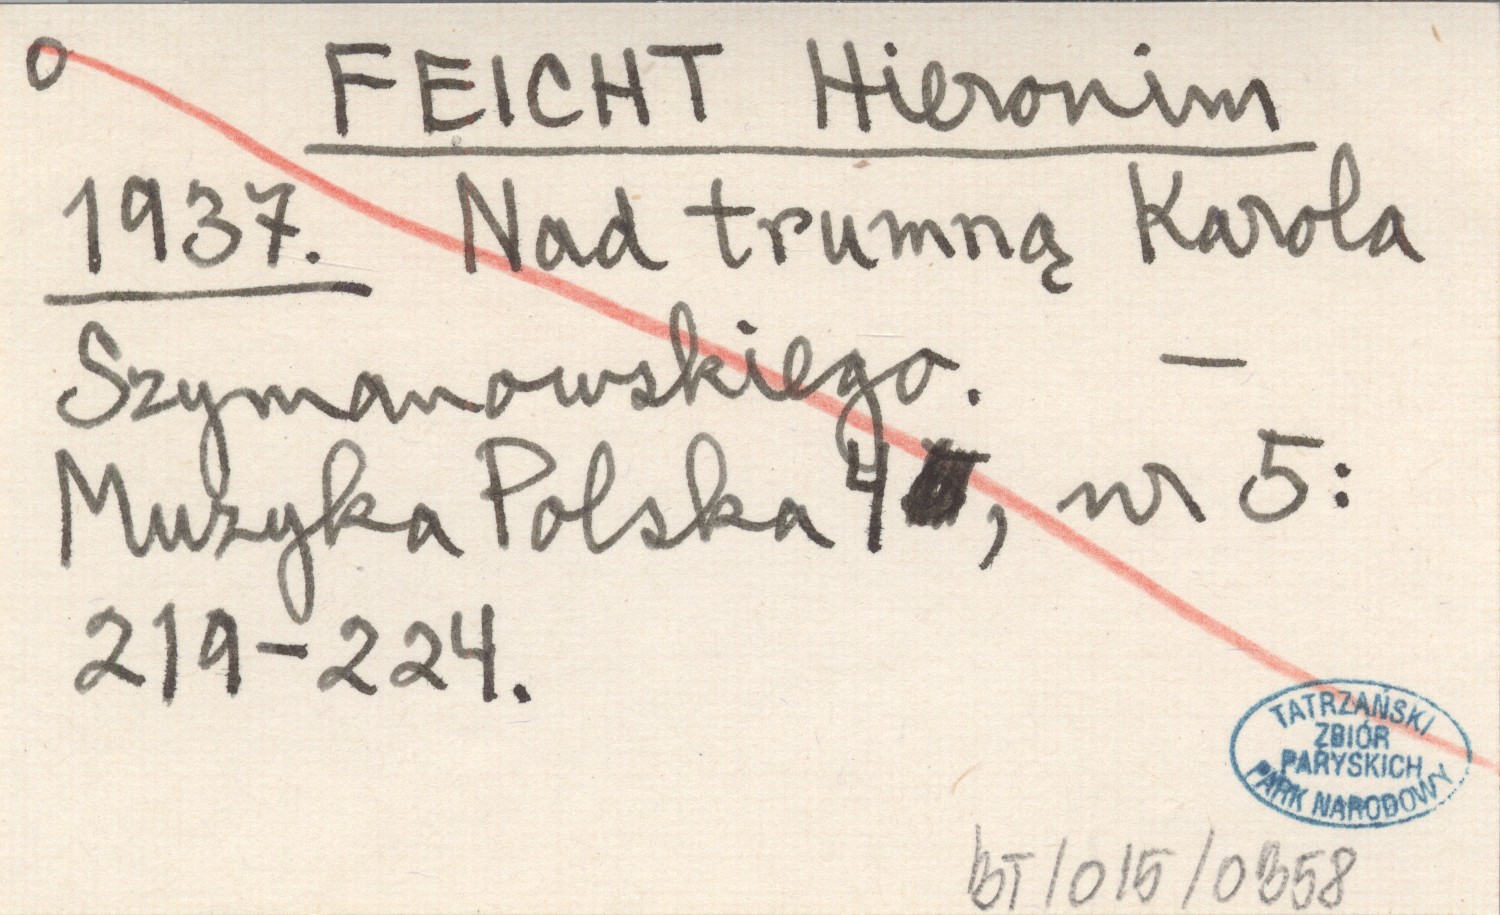 o FEICHT Hieronim
1937. Nad trumną Karola
Szymanowskiego. —
Muzyka Polska 4, nr 5:
219-224.
TATRZAŃSKI
ZBIÓR
PARYSKICH
PARK NARODOWY
BT/015/0358